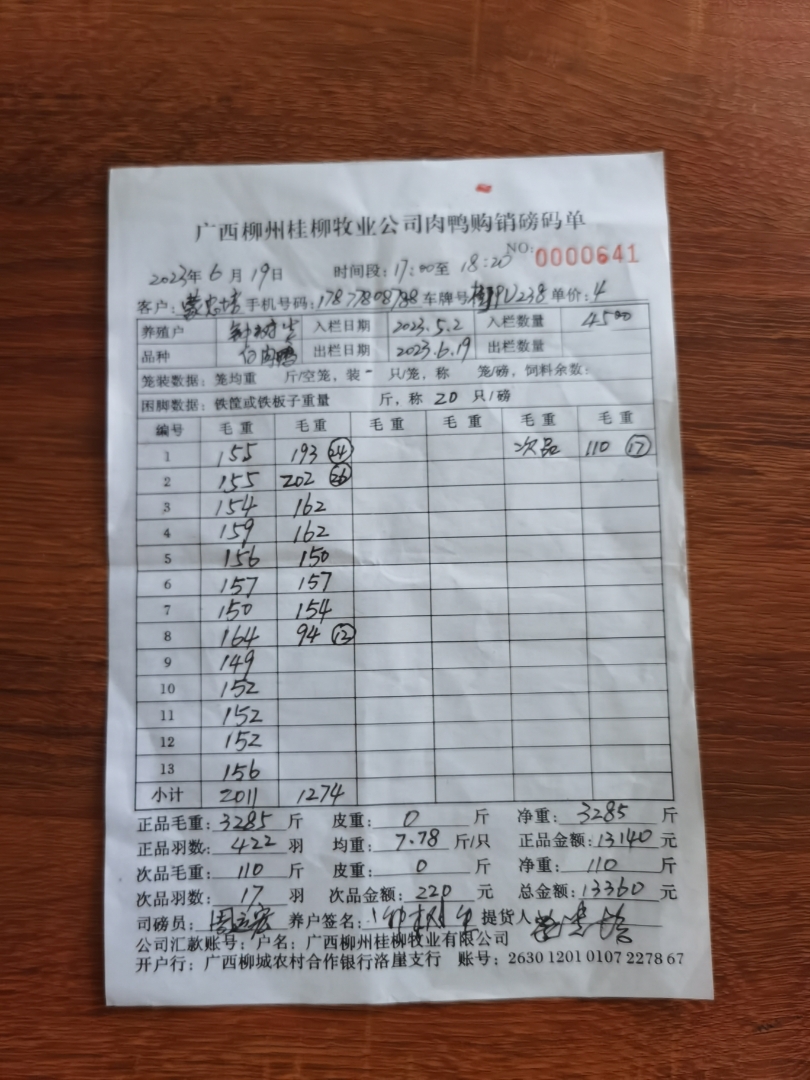 广西柳州桂柳牧业公司肉鸭购销磅码单
NO: 0000641
2023年6月19日 时间段: 17:00至 18:20
客户: 手机号码: 17877808788 车牌号 PU238 单价: 4
养殖户 入栏日期 2023.5.2 入栏数量 4500
品种 白肉鸭 出栏日期 2023.6.19 出栏数量
笼装数据: 笼均重 斤/空笼, 装 只/笼, 称 笼/磅, 饲料余数:
困脚数据: 铁筐或铁板子重量 斤, 称 20 只/磅
编号 毛重 毛重 毛重 毛重 毛重 毛重
1 155 193 24 次品 110 17
2 155 202 26
3 154 162
4 159 162
5 156 150
6 157 157
7 150 154
8 164 94 12
9 149
10 152
11 152
12 152
13 156
小计 2011 1274
正品毛重: 3285 斤 皮重: 0 斤 净重: 3285 斤
正品羽数: 422 羽 均重: 7.78 斤/只 正品金额: 13140 元
次品毛重: 110 斤 皮重: 0 斤 净重: 110 斤
次品羽数: 17 羽 次品金额: 220 元 总金额: 13360 元
司磅员: 养户签名: 提货人
公司汇款账号: 户名: 广西柳州桂柳牧业有限公司
开户行: 广西柳城农村合作银行洛崖支行 账号: 2630 1201 0107 2278 67